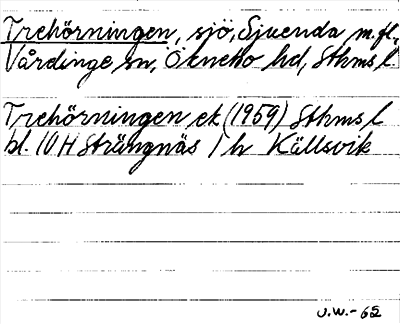 Trehörningen, sjö, Sjuenda m.fl.,
Vårdinge sn, Öknebo hd, Sthms l.
Trehörningen ek (1959) Sthms l
bl. 10H Strängnäs 1 h Källsvik
J.W.-62